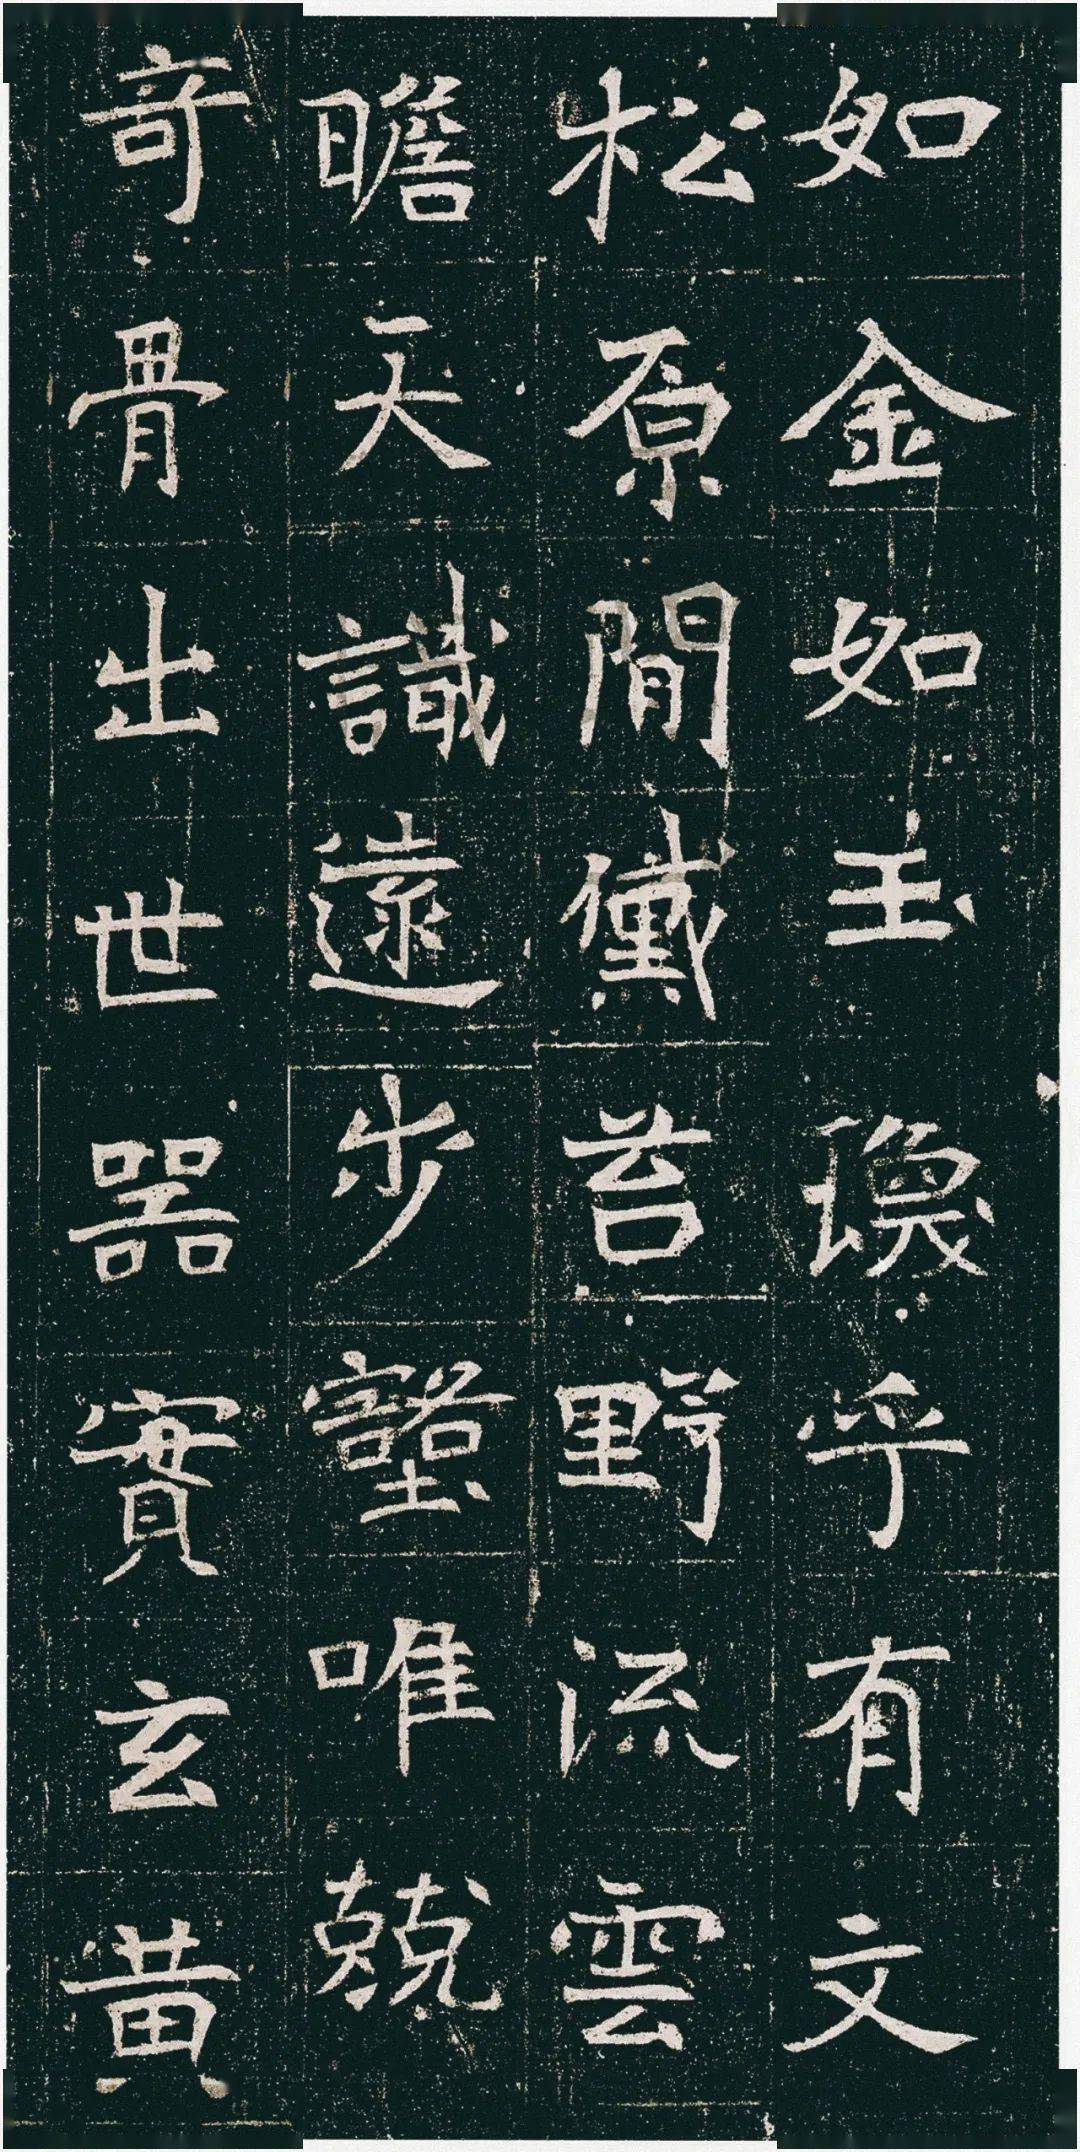 如金如玉瓊乎有文
松原間黛苔野流雲
瞻天識遠步壑唯兢
奇骨出世器實玄黃